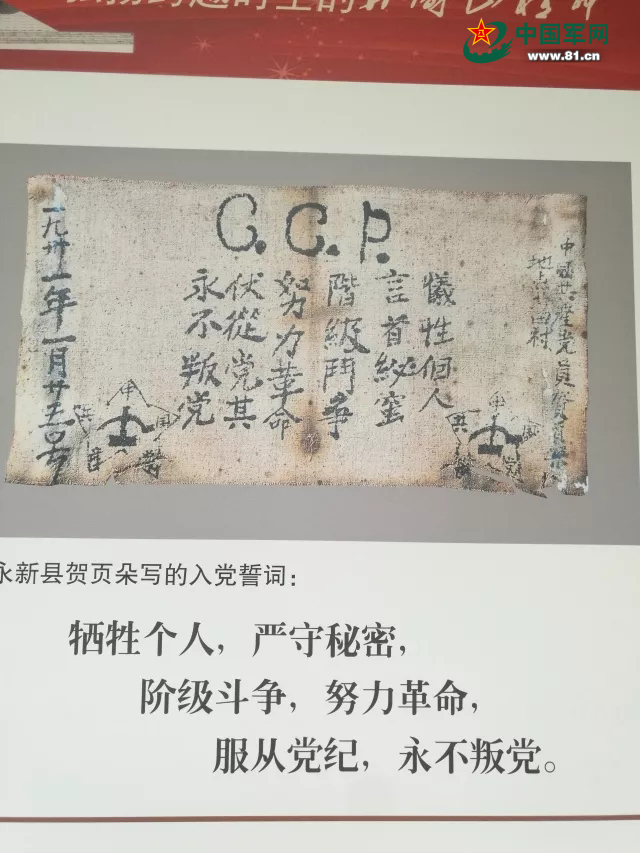 中国军网
www.81.cn
C.C.P.
中國共產党員
田村
犠牲個人
言首秘蜜
階級鬥争
努力革命
伏從党其
永不叛党
一九卅一年一月廿五号
永新县贺页朵写的入党誓词：
牺牲个人，严守秘密，
阶级斗争，努力革命，
服从党纪，永不叛党。